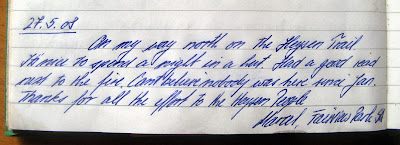 27.5.08
On my way north on the Heysen Trail
It's nice to spend a night in a hut. Had a good read
next to the fire. Cant believe nobody was here since Jan.
Thanks for all the effort to the Heysen People
Marcel, Fairview Park SA